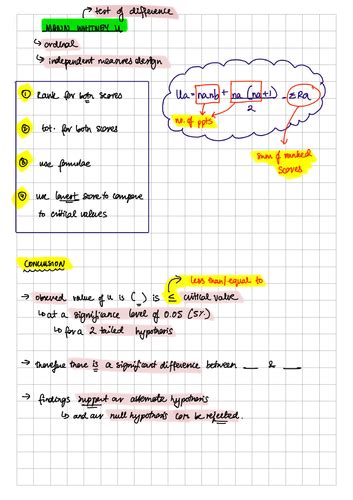 → test of difference
MANN WHITNEY U
↳ ordinal
↳ independent measures design
① Rank for both scores
② tot. for both scores
③ use formulae
④ use lowest score to compare
to critical values
Ua = nanb + na (na+1) - ΣRa
2
no. of ppts
sum of ranked
scores
CONCLUSION
→ less than/equal to
→ observed value of u is ( ) is ≤ critical value
↳ at a significance level of 0.05 (5%)
↳ for a 2 tailed hypothesis
→ therefore there is a significant difference between __ & __
→ findings support our alternate hypothesis
↳ and our null hypothesis can be rejected.